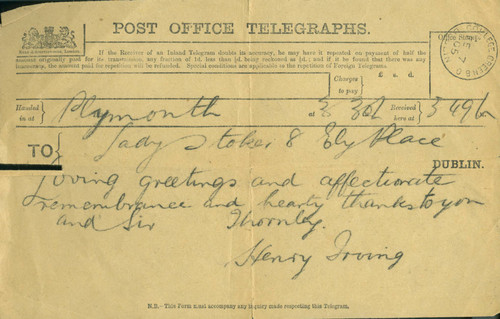 POST OFFICE TELEGRAPHS.
If the Receiver of an Inland Telegram doubts its accuracy, he may have it repeated on payment of half the
amount originally paid for its transmission, any fraction of 1d. less than ½d. being reckoned as ½d.; and if it be found that there was any
inaccuracy, the amount paid for repetition will be refunded. Special conditions are applicable to the repetition of Foreign Telegrams.
Office
Charges
to pay
£ s. d.
Handed
in at
Plymouth
at 3 36
Received
here at
3 49
TO
Lady Stoker 8 Ely Place
DUBLIN.
Loving greetings and affectionate
remembrance and hearty thanks to you
and Sir Thornley.
Henry Irving
N.B.—This Form must accompany any inquiry made respecting this Telegram.